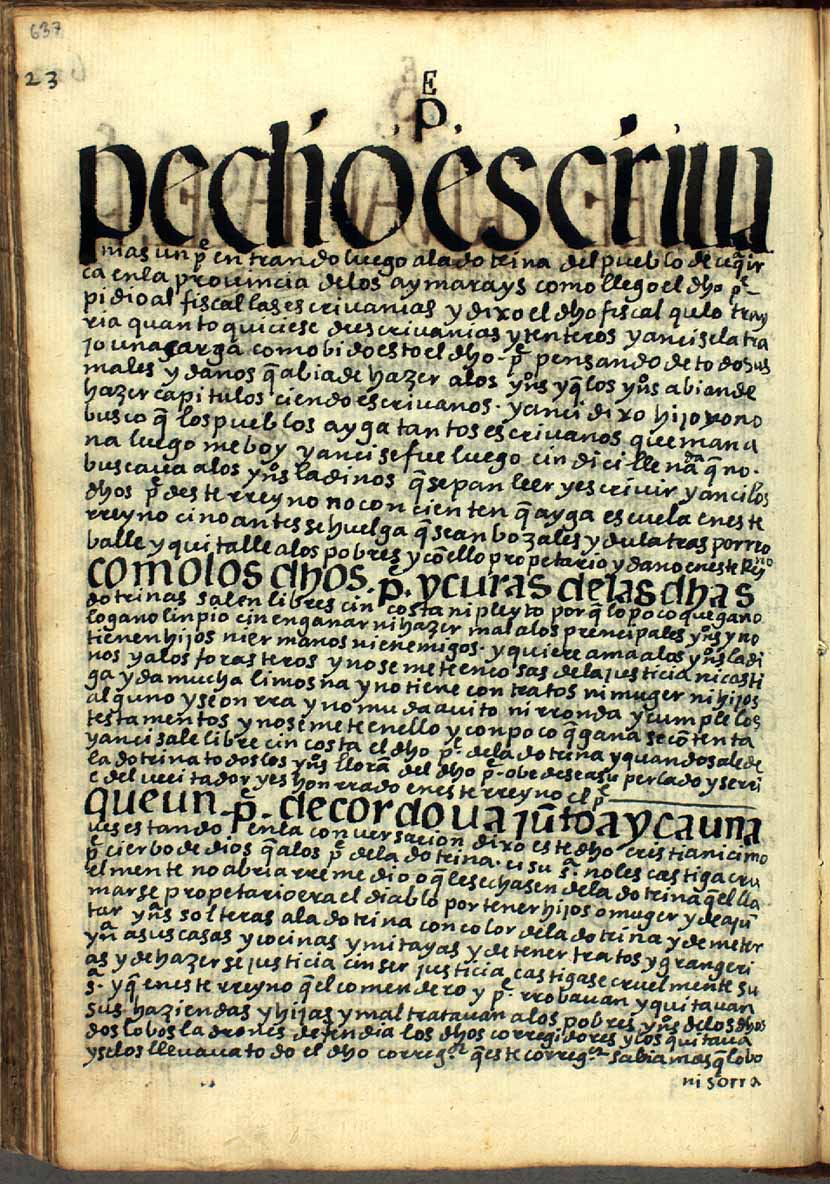 637
23
E
.p.
pedíoescríuа
nias un pͤ entrando luego a la dotrina del pueblo de uq̃ir
ca en la prouincia de los aymarays como llego el dho pͤ–
pidio al fiscal las escrivanias y dixo el dho fiscal qulo tray
ria quanto quiciese de escrivanias y tenteros y anci se la tra
jo una carga como bido esto el dho. pͤ pensando de todo sus
males y daños q̃ abia de hazer a los yns̃ y q̃ los yns̃ abian de
hazer capitulos ciendo escrivanos. y anci dixo hijo yo no
busco q̃ los pueblos ayga tantos escrivanos que mana
na luego me boy y anci se fue luego cin dicille nada q̃ no.
buscaua a los yns̃ ladinos q̃ sepan leer y escrivir y anci los
dhos pͤ deste rreyno no concienten q̃ ayga escuela en este
rreyno cino antes se huelga q̃ sean bozales y dulatras por rro
balle y quitalle a los pobres y cõ ello propetario y dano en este rrey no
como los dhos. p̃. y curas de las dhas
dotrinas salen libres cin costa ni pleyto por q̃ lo poco que gano
lo gano linpio cin enganar ni hazer mal a los prencipales yns̃ y no
tienen hijos ni ermanos ni enemigos. y quiere ama a los yns̃ ladi
nos y a los forasteros y no se mete en cosas de la justicia ni casti
ga y da mucha limosna y no tiene contratos ni muger ni hijos
alguno y se onrra y no muda auito ni rronda y cumple los
testamentos y no se mete en ello y con poco q̃ gana se cõtenta
y anci sale libre cin costa el dho pͤ de la dotrina y quando sale de
la dotrina todos los yns̃ llorã del dho pͤ. obedese a su perlado y serui
c del uecitador y es honrrado en este rreyno el pͤ
que un. p̃. de cordoua jũto a ycauna
ues estando en la conuersacion dixo este dho cristianicimo
pͤ cierbo de dios q̃ a los pͤ de la dotrina. ci su s̃. no les castiga cru
elmente no abria rremedio o q̃ les echasen de la dotrina q̃ el lla
marse propetario era el diablo por tener hijos o muger y de ajũ
tar yns̃ solteras a la dotrina con color de la dotrina y de meter
yñ a sus casas y cocinas y mitayas y de tener tratos y grangeri
as y de hazerse justicia cin ser justicia castigase cruelmente su
s̃. y q̃ en este rreyno q̃ el comendero y pͤ rrobauan y quitauan
sus haziendas y hijas y maltratauan a los pobres yns̃ de los dhos
dos lobos ladrones defendia los dhos corregidores y los quitaua
y se los lleuaua todo el dho correg.ᵒʳ q̃ este correg.ᵒʳ sabia mas q̃ lobo
ni sorra